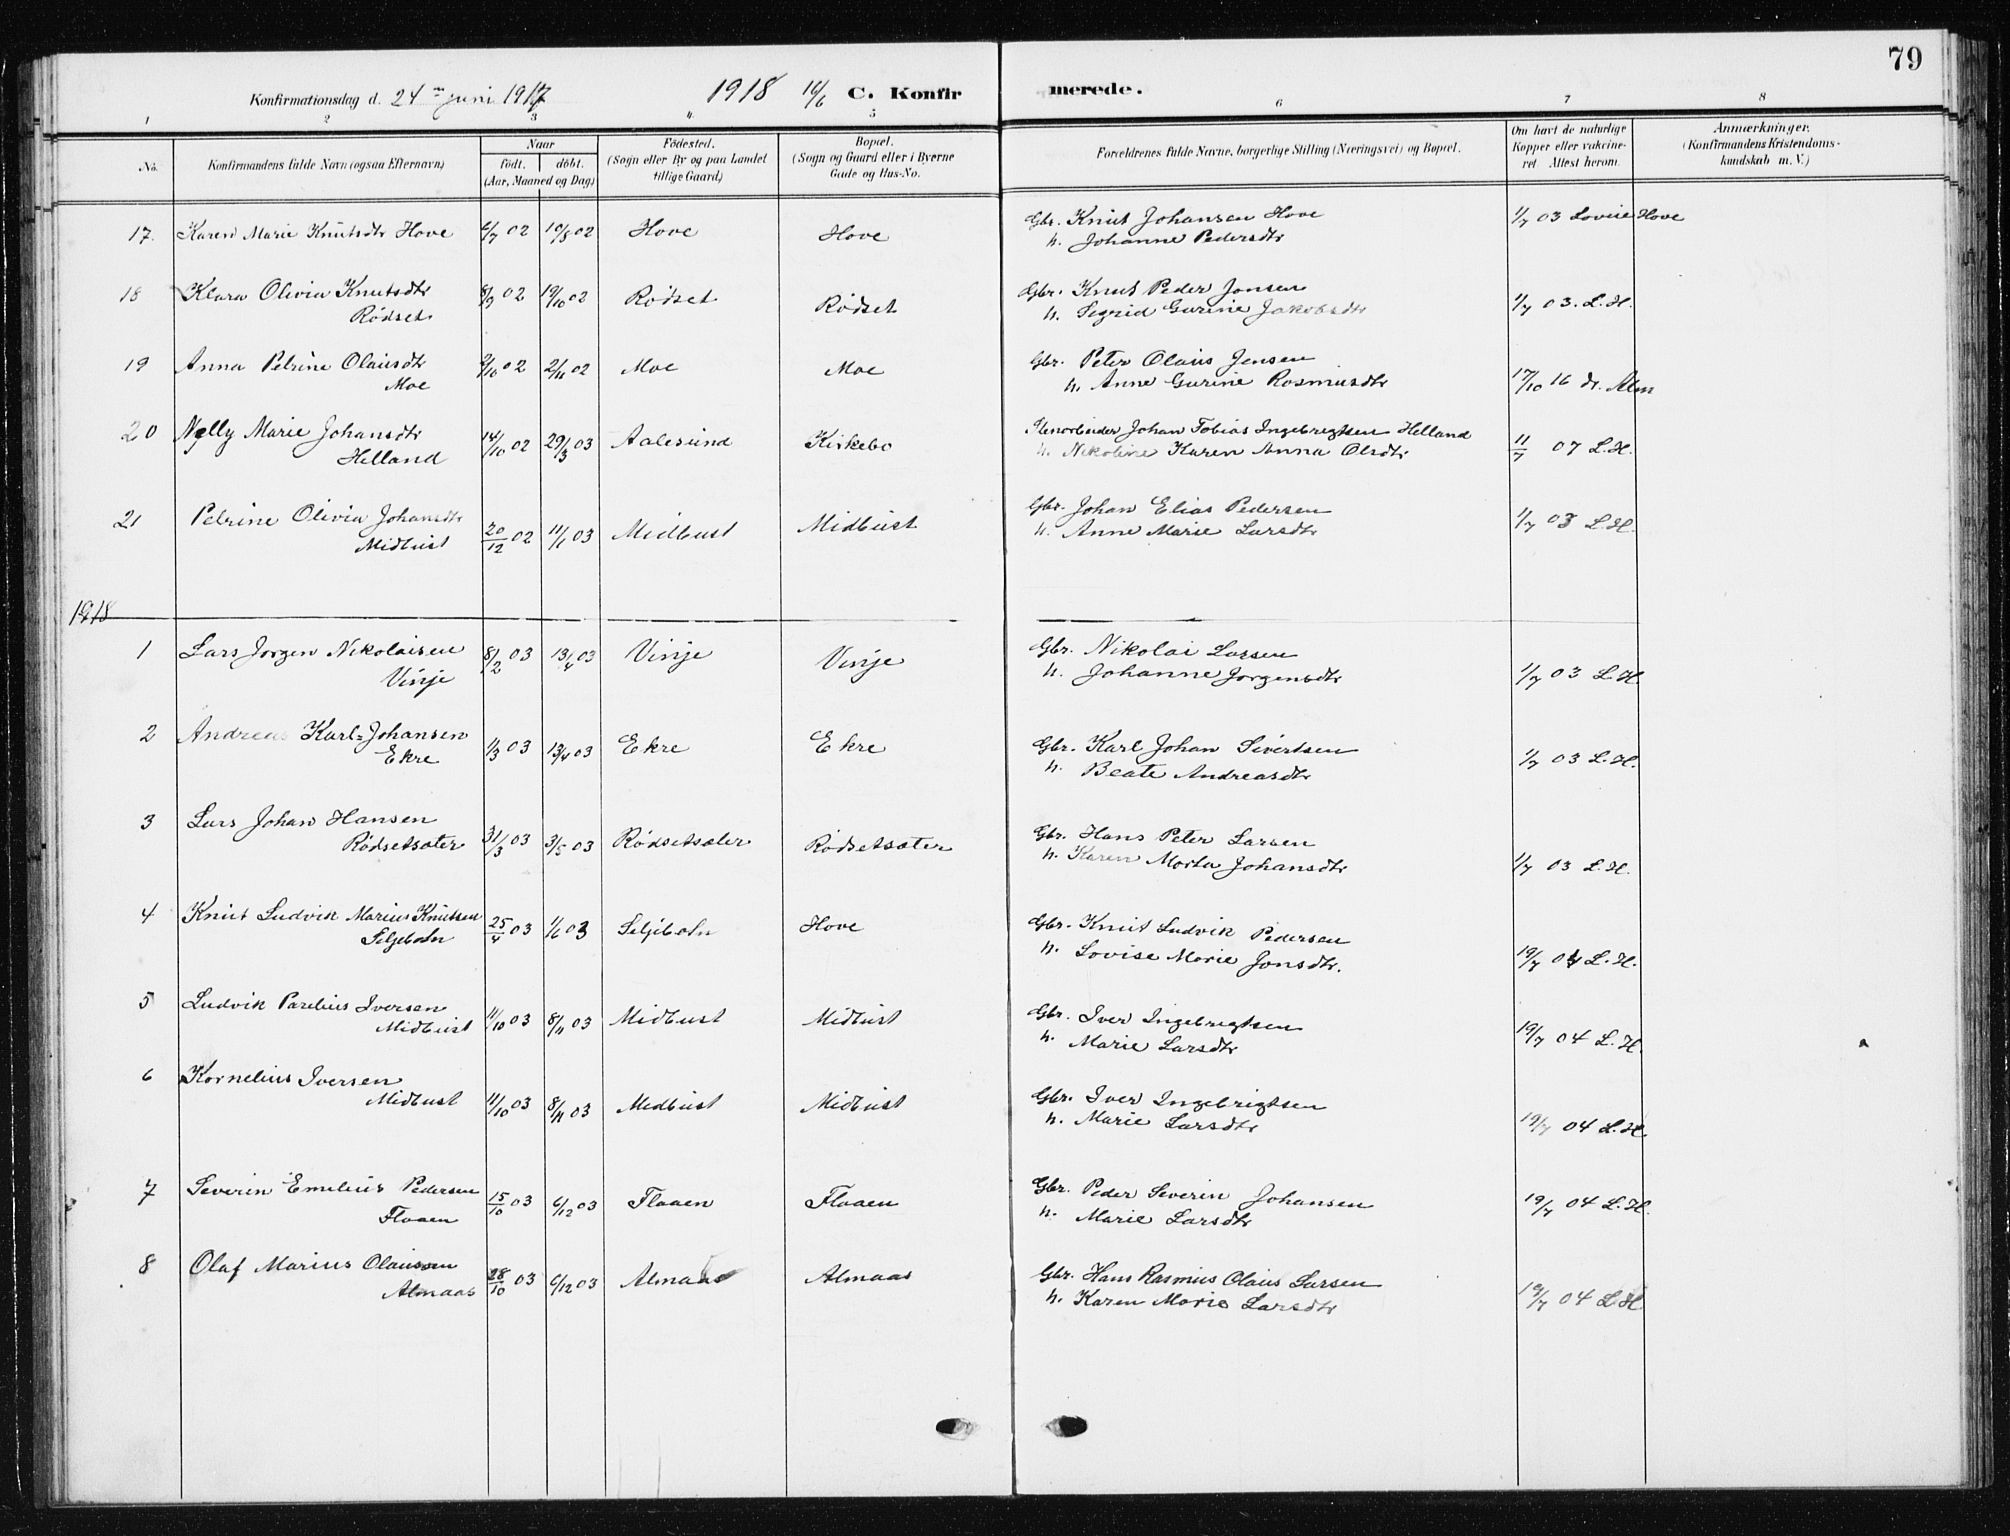 79
Konfirmationsdag d. 24 juni 1917 1918 16/6 C. Konfirmerede.
1 2 3 4 5 6 7 8
No. Konfirmandens fulde Navn (ogsaa Efternavn) Naar født. døbt. (Aar, Maaned og Dag) Fødested. (Sogn eller By og paa Landet tillige Gaard) Bopæl. (Sogn og Gaard eller i Byerne Gade og Hus-No. Forældrenes fulde Navne, borgerlige Stilling (Næringsvei) og Bopæl. Om havt de naturlige Kopper eller vakcineret Attest herom. Anmærkninger, (Konfirmandens Kristendomskundskab m. V.)
17. Karen Marie Knutsdtr Hove 6/7 02 10/8 02 Hove Hove Gbr. Knut Johansen Hove 1/7 03 Lovise Hove
h. Johanne Pedersdtr
18 Klara Olivia Knutsdtr 8/9 02 19/10 02 Rødset Rødset Gbr. Knut Peder Jonsen 1/7 03. L. H.
Rødset h. Segrid Gurine Jakobsdtr
19 Anna Petrine Olausdtr 2/10 02 2/11 02 Moe Moe Gbr. Peter Olaus Jensen 17/10 16 dr. Alm
Moe h. Anne Gurine Rasmusdtr
20 Nelly Marie Johansdtr 14/10 02 29/3 03 Aalesund Kirkebø Johan Tobias Ingebrigtsen Helland 11/7 07 L. H.
Helland h. Nikoline Karen Anna Olsdtr
21 Petrine Olivia Johansdtr 20/12 02 11/1 03 Midbust Midbust Gbr. Johan Elias Pedersen 1/7 03 L. H.
Midbust h. Anne Marie Larsdtr
1918
1 Lars Jørgen Nikolaisen 8/2 03 13/4 03 Vinje Vinje Gbr. Nikolai Larsen 1/7 03 L. H.
Vinje h. Johanne Jørgensdtr
2 Andreas Karl=Johansen 1/3 03 13/4 03 Ekre Ekre Gbr. Karl Johan Sivertsen 1/7 03 L. H.
Ekre h. Beate Andreasdtr
3 Lars Johan Hansen 31/3 03 3/5 03 Rødsetsæter Rødsetsæter Gbr. Hans Peter Larsen 1/7 03 L. H.
Rødsetsæter h. Karen Marta Johansdtr
4 Knut Ludvik Marius Knutsen 25/4 03 1/6 03 Seljebotn Hove Gbr. Knut Ludvik Pedersen 19/7 04 L. H.
Seljebotn h. Lovise Marie Jonsdtr.
5 Ludvik Parelius Iversen 11/10 03 8/11 03 Midbust Midbust Gbr. Iver Ingebrigtsen 19/7 04 L. H.
Midbust h. Marie Larsdtr
6 Kornelius Iversen 11/10 03 8/11 03 Midbust Midbust Gbr. Iver Ingebrigtsen 19/7 04 L. H.
Midbust h. Marie Larsdtr
7 Severin Emelius Pedersen 15/10 03 6/12 03 Flaaen Flaaen Gbr. Peder Severin Johansen 19/7 04 L. H.
Flaaen h. Marie Larsdtr
8 Olaf Marius Olaussen 28/10 03 6/12 03 Almaas Almaas Gbr. Hans Rasmus Olaus Larsen 19/7 04 L. H.
Almaas h. Karen Marie Larsdtr